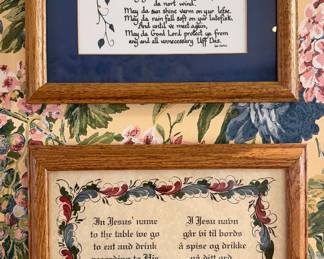 da nort wind,
May da sun shine varm on your lefse,
May da rain fell soft on your lutefisk,
And until ve meet again,
May da Good Lord protect ya from
any and all unnecessary Uff Das.
In Jesus' name
to the table we go
to eat and drink
according to His
I Jesu navn
går vi til bords
å spise og drikke
på ditt ord